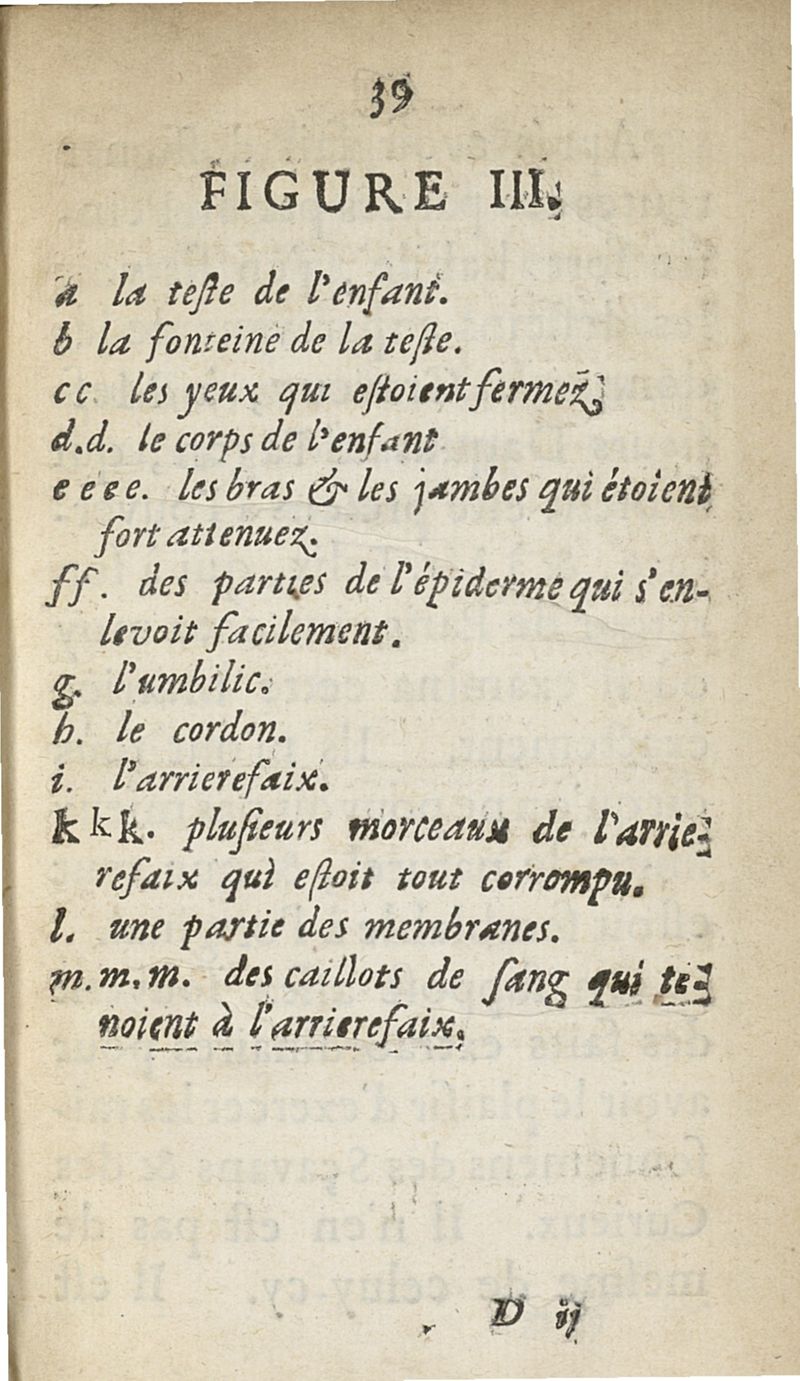 39
FIGURE III.
a la teſte de l'enfant.
b la fonteine de la teſte.
c c. les yeux qui eſtoient fermez,
d.d. le corps de l'enfant
e e e e. les bras & les jambes qui étoient
fort attenuez.
ff. des parties de l'épiderme qui s'en-
levoit facilement.
g. l'umbilic.
h. le cordon.
i. l'arrierefaix.
k k k. pluſieurs morceaux de l'arrie-
refaix qui eſtoit tout corrompu.
l. une partie des membranes.
m. m. m. des caillots de ſang qui te-
noient à l'arrierefaix.
D ij